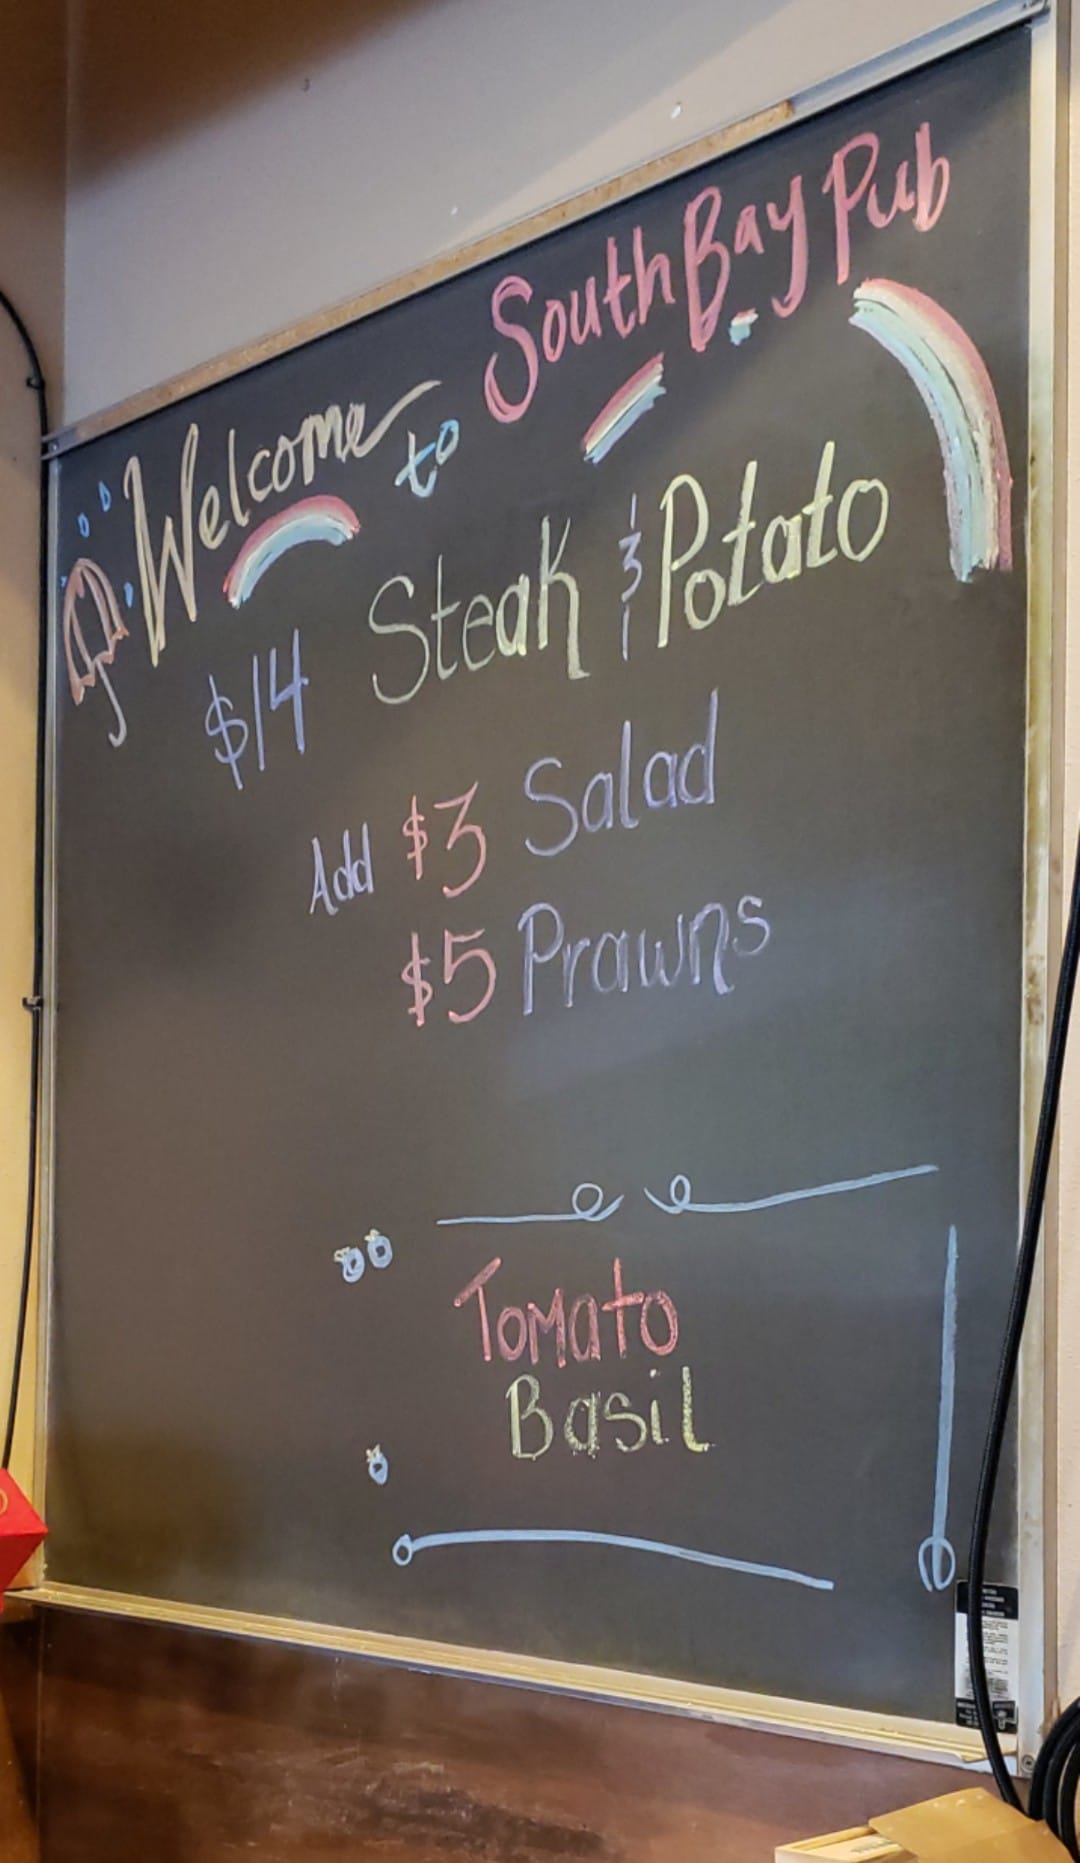 Welcome to South Bay Pub
$14 Steak & Potato
Add $3 Salad
$5 Prawns
Tomato
Basil